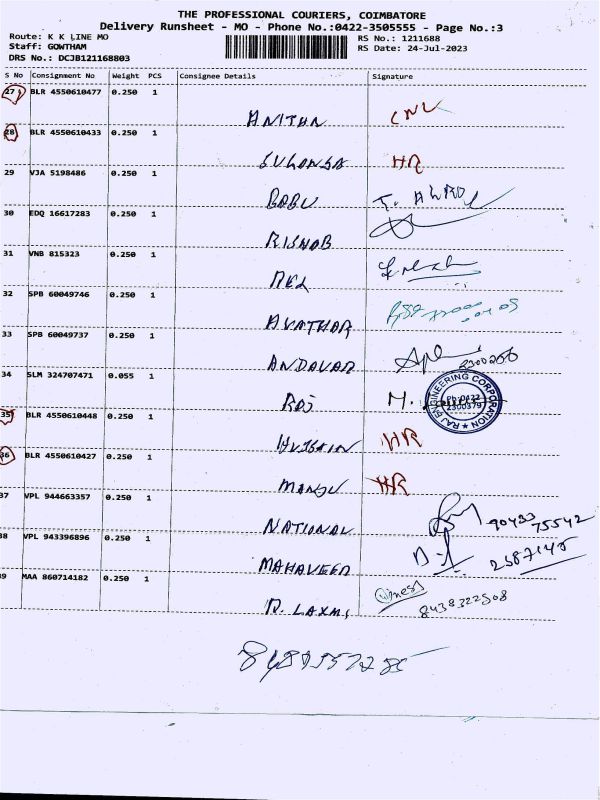 THE PROFESSIONAL COURIERS, COIMBATORE
Delivery Runsheet - MO - Phone No.:0422-3505555 - Page No.:3
Route: K K LINE MO RS No.: 1211688
Staff: GOWTHAM RS Date: 24-Jul-2023
DRS No.: DCJB121168803
S No Consignment No Weight PCS Consignee Details Signature
27 BLR 4550610477 0.250 1
ANITHA
28 BLR 4550610433 0.250 1
SUGANSA HR
29 VJA 5198486 0.250 1
BABU
30 EDQ 16617283 0.250 1
RISHAB
31 VNB 815323 0.250 1
32 SPB 60049746 0.250 1
AVATHAR
33 SPB 60049737 0.250 1
ANDAVAR
34 SLM 324707471 0.055 1
RAJ M.
RAJ ENGINEERING CORPORATION
Ph:0422
2300379
35 BLR 4550610448 0.250 1
HUSSAIN HR
36 BLR 4550610427 0.250 1
MANJU HR
37 VPL 944663357 0.250 1
NATIONAL 90433 75542
38 VPL 943396896 0.250 1
MAHAVEER 2587145
39 MAA 860714182 0.250 1
R. LAXMI 8438322508